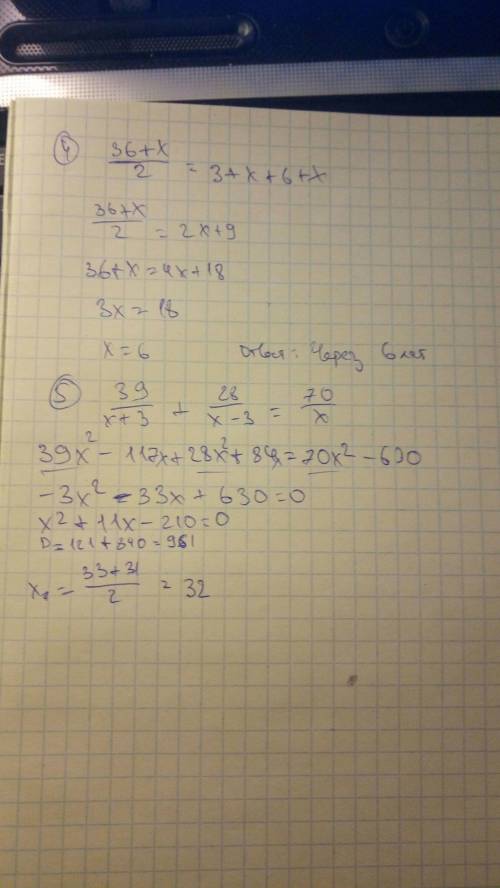 4 (36+x)/2 = 3+x+6+x
(36+x)/2 = 2x+9
36+x=4x+18
3x=18
x=6 Ответ: Через 6 лет
5 39/(x+3) + 28/(x-3) = 70/x
39x² - 117x+28x²+84x=70x² - 630
-3x² - 33x + 630=0
x²+11x-210=0
D=121+840=961
x₁ = (33+31)/2 = 32